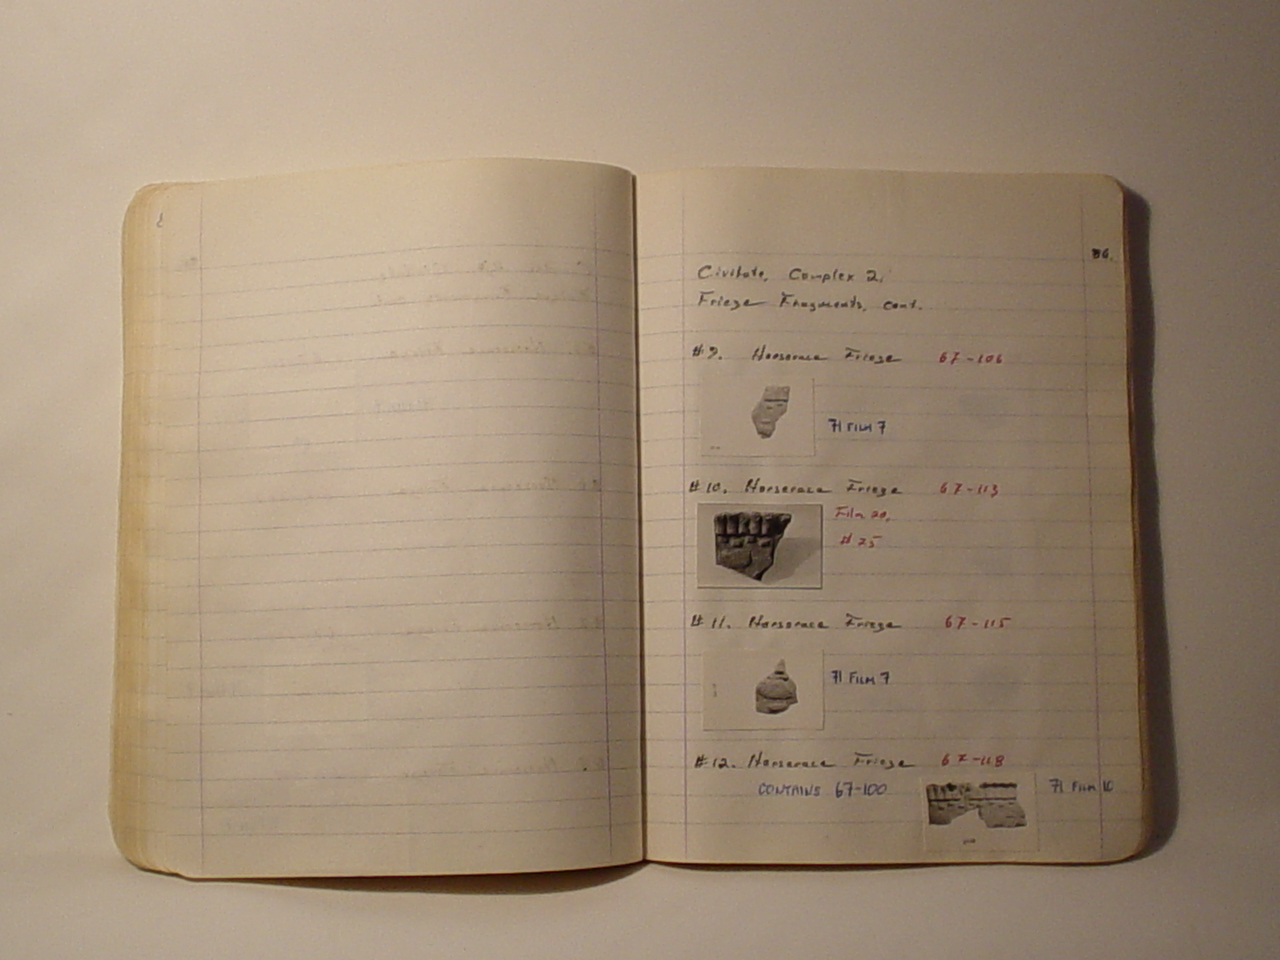 86.
Civitate, Complex 2,
Frieze Fragments, cont.
#9. Horserace Frieze 67-106
71 FILM 7
#10. Horserace Frieze 67-113
Film 20,
#25
#11. Horserace Frieze 67-115
71 FILM 7
#12. Horserace Frieze 67-118
CONTAINS 67-100 71 FILM 10